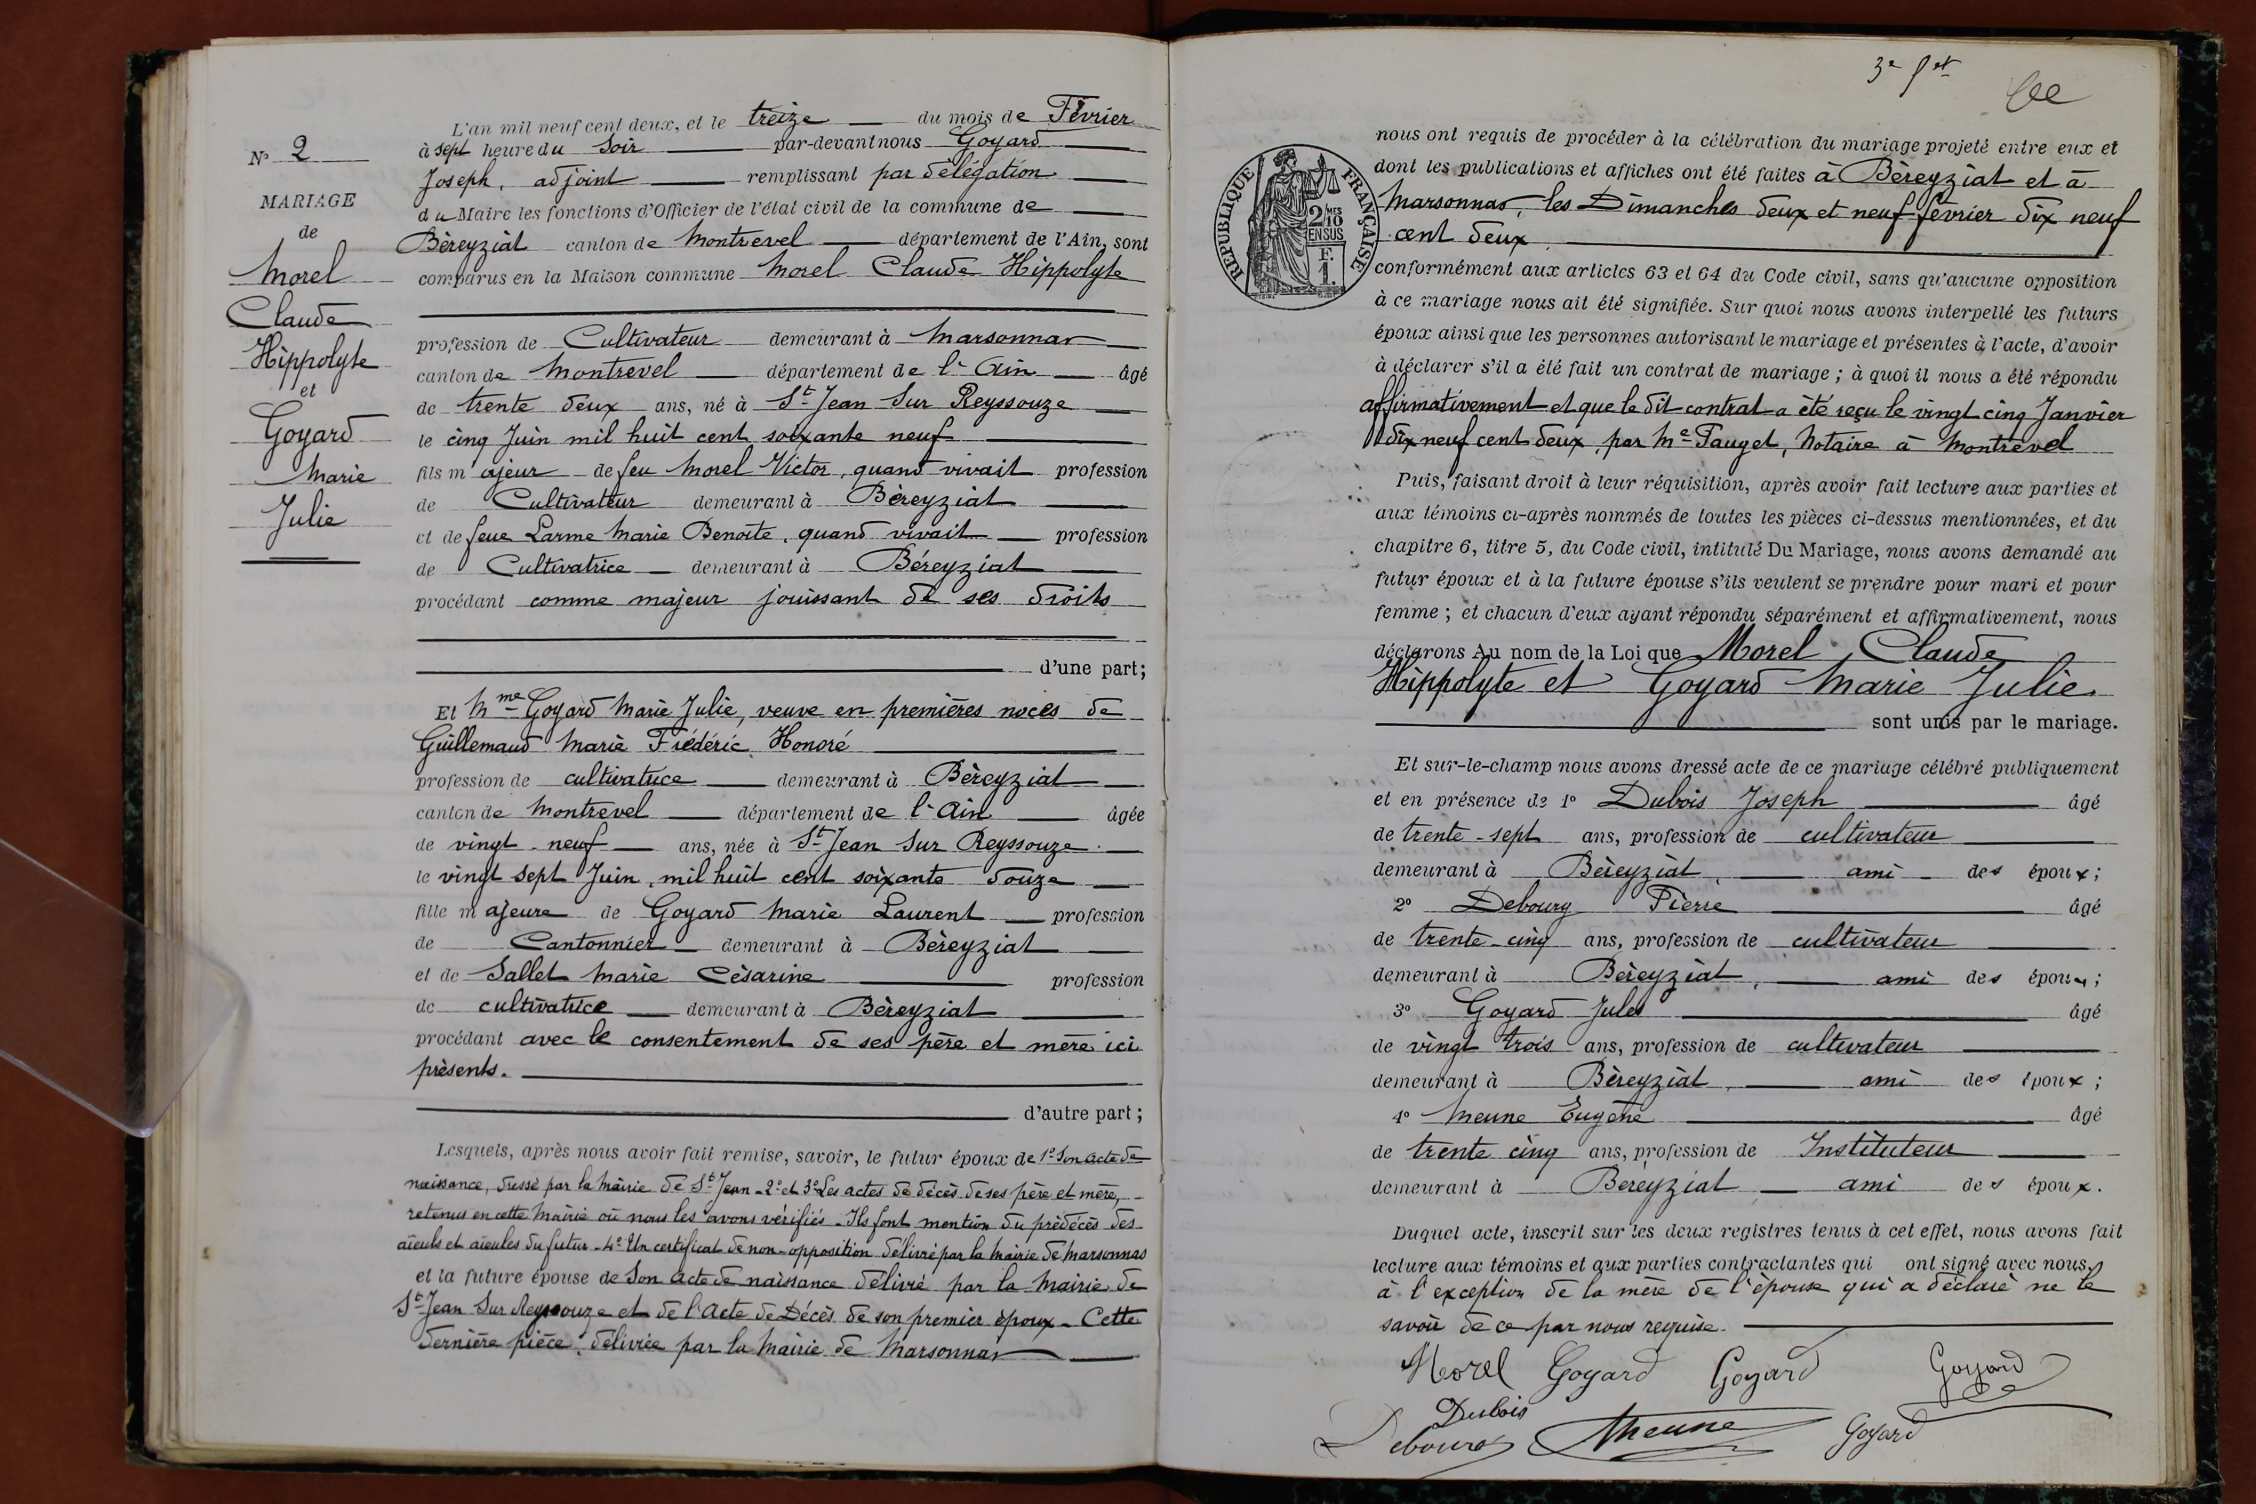 L'an mil neuf cent deux, et le treize du mois de Février
à sept heure du soir par-devant nous Goyard
Joseph, adjoint remplissant par délégation
du Maire les fonctions d'Officier de l'état civil de la commune de
Béreyziat canton de Montrevel département de l'Ain, sont
comparus en la Maison commune Morel Claude Hippolyte
profession de Cultivateur demeurant à Marsonnas
canton de Montrevel département de l'Ain âgé
de trente deux ans, né à St Jean Sur Reyssouze
le cinq Juin mil huit cent soixante neuf
fils majeur de feu Morel Victor, quand vivait profession
de Cultivateur demeurant à Béreyziat
et de feue Larme Marie Benoite, quand vivait profession
de Cultivatrice demeurant à Béreyziat
procédant comme majeur jouissant de ses droits
d'une part;
Et Mme Goyard Marie Julie, veuve en premières noces de
Guillemaud Marie Frédéric Honoré
profession de cultivatrice demeurant à Béreyziat
canton de Montrevel département de l'Ain âgée
de vingt-neuf ans, née à St Jean Sur Reyssouze
le vingt sept Juin, mil huit cent soixante douze
fille majeure de Goyard Marie Laurent profession
de Cantonnier demeurant à Béreyziat
et de Sallet Marie Césarine profession
de cultivatrice demeurant à Béreyziat
procédant avec le consentement de ses père et mère ici
présents.
d'autre part;
Lesquels, après nous avoir fait remise, savoir, le futur époux de 1º Son acte de
naissance, dressé par la mairie de St Jean - 2º et 3º Les actes de décès de ses père et mère,
retenus en cette mairie où nous les avons vérifiés - Ils font mention du prédécès des
aïeuls et aïeules du futur - 4º Un certificat de non-opposition délivré par la Mairie de Marsonnas
et la future épouse de Son acte de naissance délivré par la Mairie de
St Jean Sur Reyssouze et de l'acte de Décès de son premier époux - Cette
dernière pièce délivrée par la Mairie de Marsonnas
Nº 2
MARIAGE
de
Morel
Claude
Hippolyte
et
Goyard
Marie
Julie
3e
RÉPUBLIQUE FRANÇAISE
2/10 MES
EN SUS
F.
1.
nous ont requis de procéder à la célébration du mariage projeté entre eux et
dont les publications et affiches ont été faites à Béreyziat et à
Marsonnas, les Dimanches deux et neuf février dix neuf
cent deux
conformément aux articles 63 et 64 du Code civil, sans qu'aucune opposition
à ce mariage nous ait été signifiée. Sur quoi nous avons interpellé les futurs
époux ainsi que les personnes autorisant le mariage et présentes à l'acte, d'avoir
à déclarer s'il a été fait un contrat de mariage; à quoi il nous a été répondu
affirmativement et que le dit contrat a été reçu le vingt cinq Janvier
dix neuf cent deux, par Me Pauget, Notaire à Montrevel
Puis, faisant droit à leur réquisition, après avoir fait lecture aux parties et
aux témoins ci-après nommés de toutes les pièces ci-dessus mentionnées, et du
chapitre 6, titre 5, du Code civil, intitulé Du Mariage, nous avons demandé au
futur époux et à la future épouse s'ils veulent se prendre pour mari et pour
femme; et chacun d'eux ayant répondu séparément et affirmativement, nous
déclarons Au nom de la Loi que Morel Claude
Hippolyte et Goyard Marie Julie
sont unis par le mariage.
Et sur-le-champ nous avons dressé acte de ce mariage célébré publiquement
et en présence de 1º Dubois Joseph âgé
de trente-sept ans, profession de cultivateur
demeurant à Béreyziat, ami des époux;
2º Debourg Pierre âgé
de trente-cinq ans, profession de cultivateur
demeurant à Béreyziat, ami des époux;
3º Goyard Jules âgé
de vingt trois ans, profession de cultivateur
demeurant à Béreyziat, ami des époux;
4º Meune Eugène âgé
de trente cinq ans, profession de Instituteur
demeurant à Béreyziat ami des époux.
Duquel acte, inscrit sur les deux registres tenus à cet effet, nous avons fait
lecture aux témoins et aux parties contractantes qui ont signé avec nous,
à l'exception de la mère de l'épouse qui a déclaré ne le
savoir de ce par nous requise.
Morel Goyard Goyard Goyard
Dubois
Debourg Meune Goyard